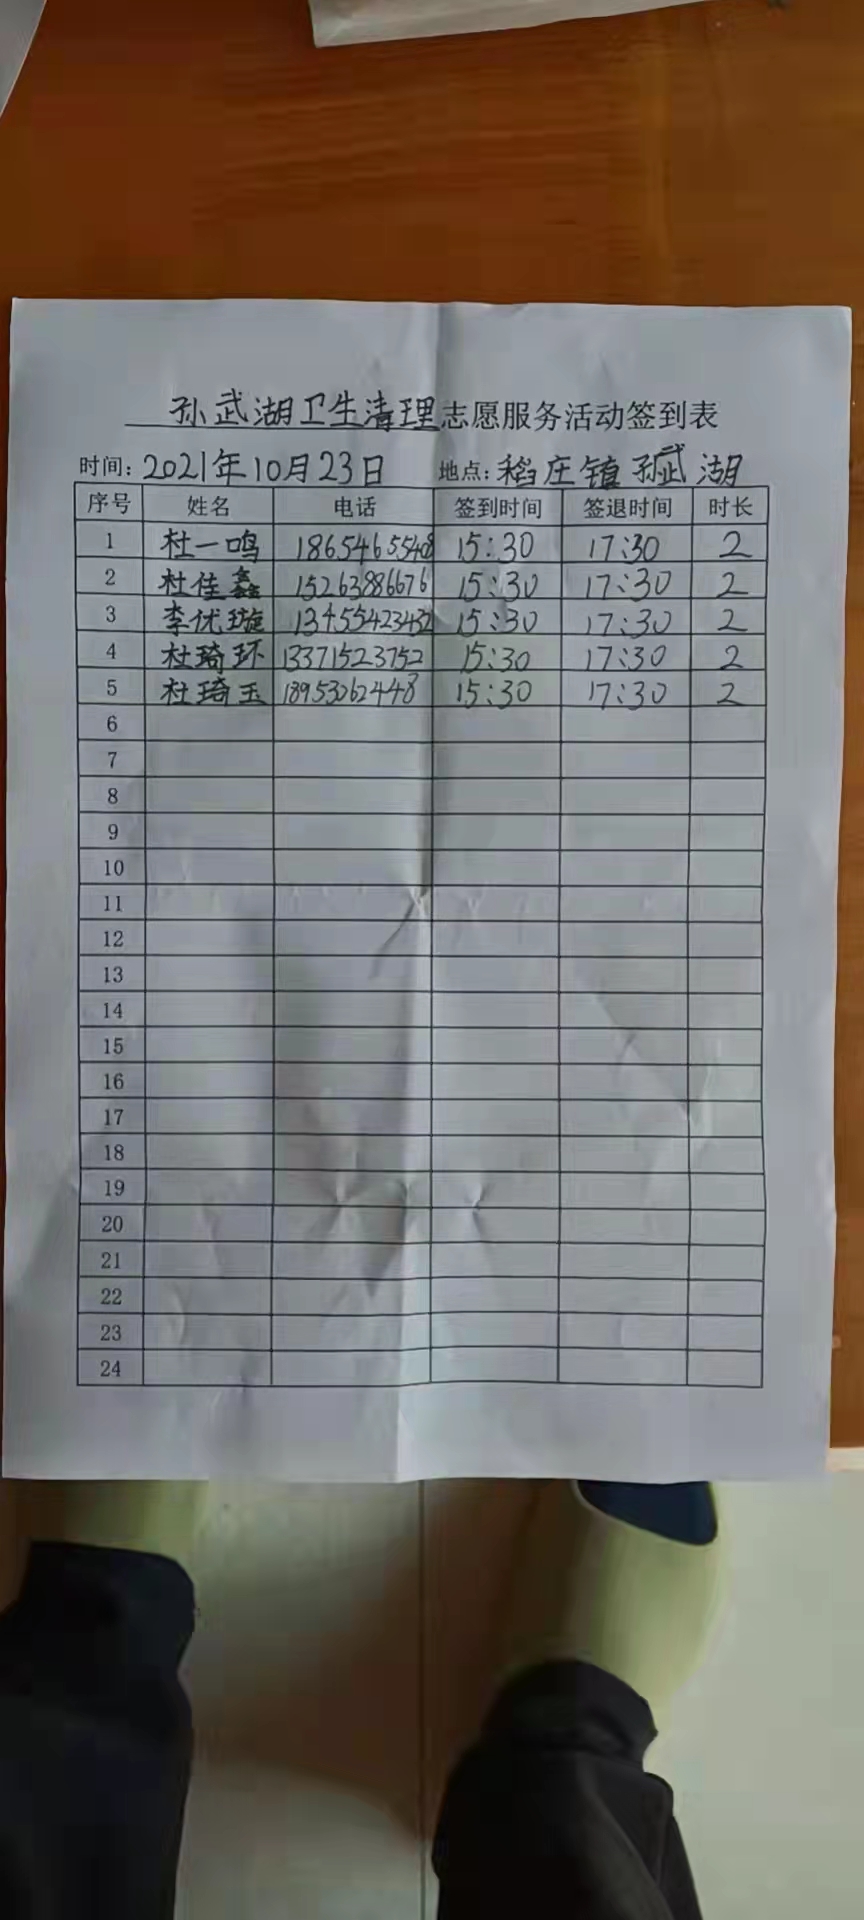 孙武湖卫生清理志愿服务活动签到表
时间：2021年10月23日 地点：稻庄镇孙武湖
序号 姓名 电话 签到时间 签退时间 时长
1 杜一鸣 18654655408 15:30 17:30 2
2 杜佳鑫 15263886676 15:30 17:30 2
3 李优璇 13455423432 15:30 17:30 2
4 杜琦环 13371523752 15:30 17:30 2
5 杜琦玉 18953262448 15:30 17:30 2
6
7
8
9
10
11
12
13
14
15
16
17
18
19
20
21
22
23
24